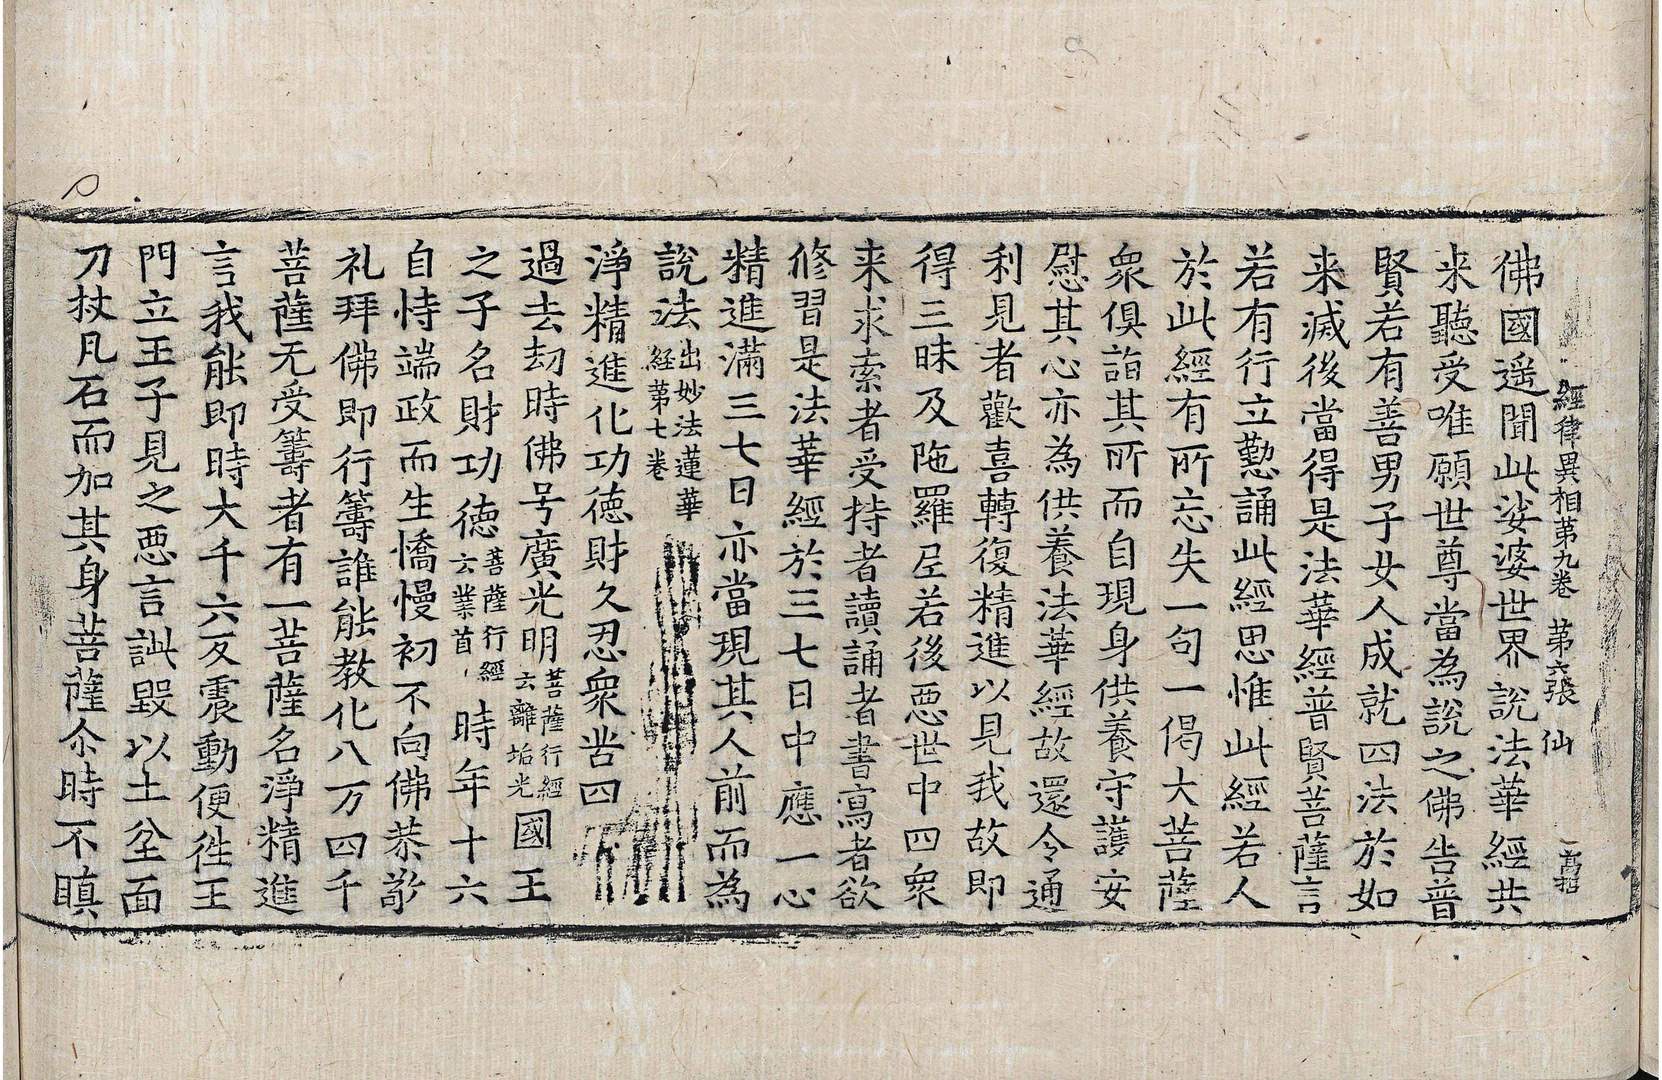 經律異相苐九卷　苐六張　仙
佛國遥聞此娑婆世界說法華經共
来聽受唯願世尊當為說之佛告普
賢若有善男子女人成就四法於如
来滅後當得是法華經普賢菩薩言
若有行立懃誦此經思惟此經若人
於此經有所忘失一句一偈大菩薩
衆俱詣其所而自現身供養守護安
慰其心亦為供養法華經故還令通
利見者歡喜轉復精進以見我故即
得三昧及陁羅尼若後惡世中四衆
来求索者受持者讀誦者書寫者欲
修習是法華經於三七日中應一心
精進滿三七日亦當現其人前而為
說法出妙法蓮華經苐七卷
淨精進化功德財久忍衆苦四
過去劫時佛号廣光明菩薩行經云離垢光國王
之子名財功德菩薩行經云業首時年十六
自恃端政而生憍慢初不向佛恭敬
礼拜佛即行籌誰能教化八万四千
菩薩无受籌者有一菩薩名淨精進
言我能即時大千六反震動便徃王
門立王子見之惡言訿毀以土坌面
刀杖凡石而加其身菩薩尒時不瞋